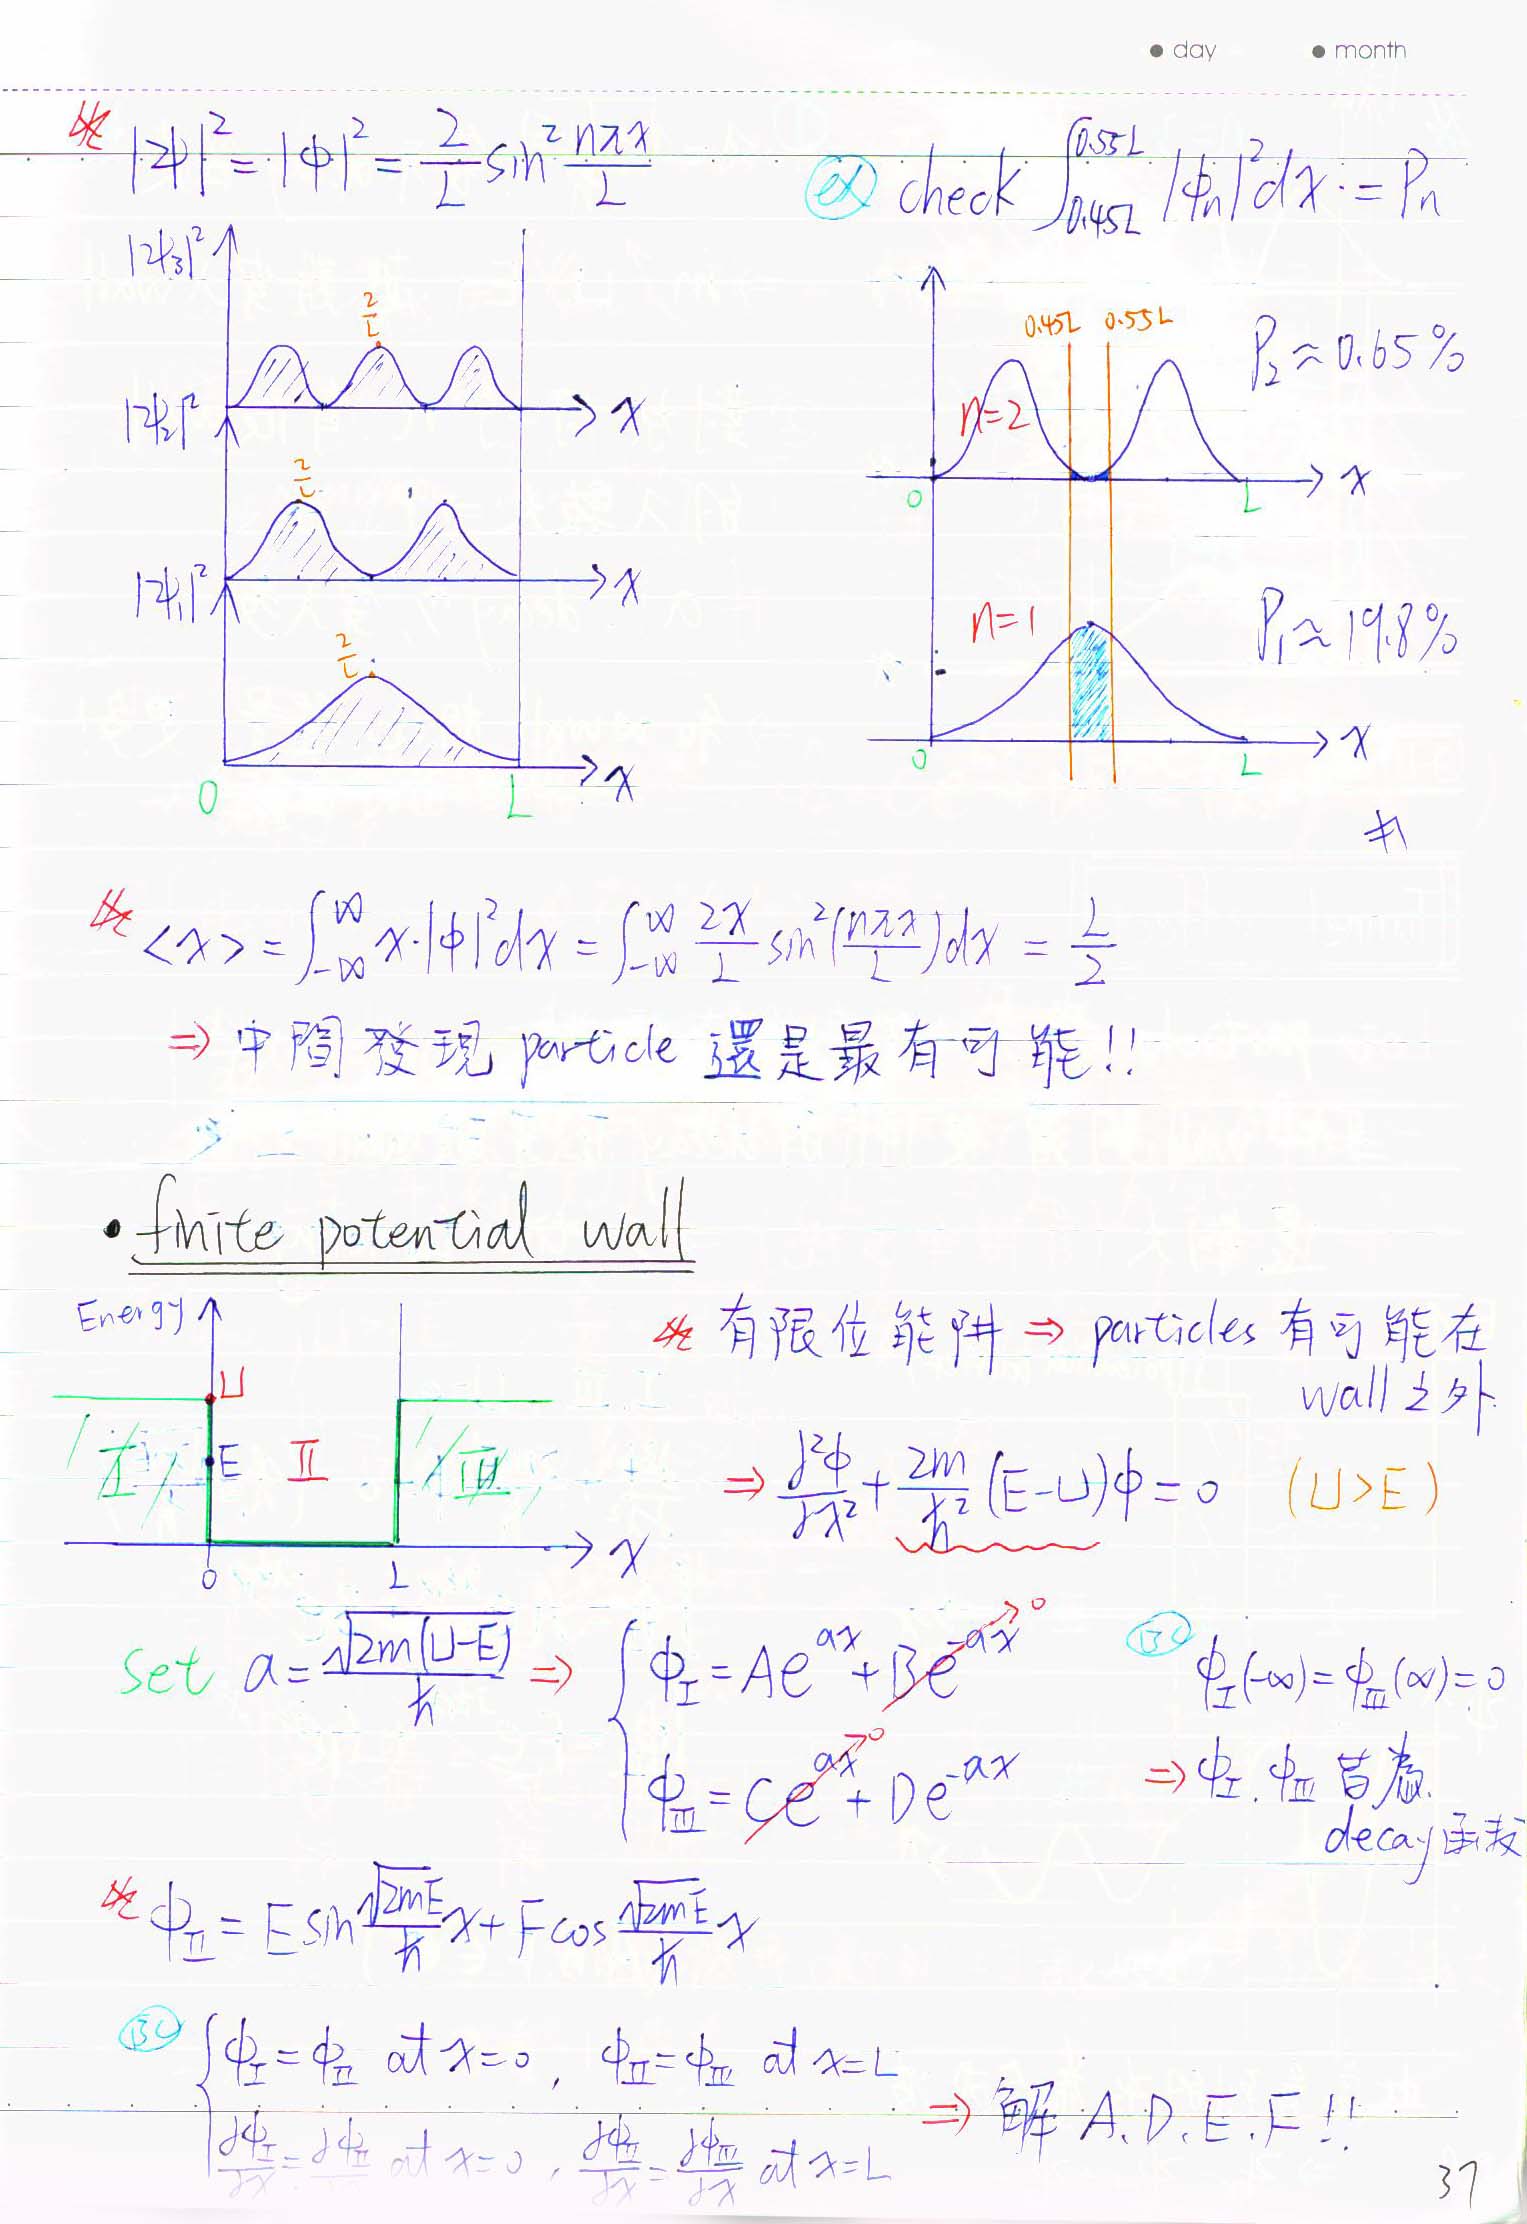 • day • month
|ψ|² = |φ|² = 2/L sin² nπx/L
ex check ∫_{0.45L}^{0.55L} |φn|² dx = Pn
|ψ₃|²
2/L
x
|ψ₂|²
2/L
x
|ψ₁|²
2/L
x
0 L
0.45L 0.55L
P₂ ≈ 0.65%
n=2
0 L x
n=1
P₁ ≈ 19.8%
0 L x
<x> = ∫_{-∞}^{∞} x·|φ|² dx = ∫_{-∞}^{∞} 2x/L sin²(nπx/L) dx = L/2
⇒ 中間發現 particle 還是最有可能!!
• finite potential wall
Energy
U
I E II III
0 L x
有限位能阱 ⇒ particles 有可能在
wall 之外
⇒ ∂²φ/∂x² + 2m/ħ² (E-U)φ = 0 (U>E)
Set a = √2m(U-E)/ħ ⇒
φ_I = Ae^{ax} + Be^{-ax} → 0
φ_III = Ce^{ax} → 0 + De^{-ax}
BC φ_I(-∞) = φ_III(∞) = 0
⇒ φ_I. φ_III 皆為
decay 函数
φ_II = E sin √2mE/ħ x + F cos √2mE/ħ x
BC φ_I = φ_II at x=0, φ_II = φ_III at x=L
∂φ_I/∂x = ∂φ_II/∂x at x=0, ∂φ_II/∂x = ∂φ_III/∂x at x=L
⇒ 解 A.D.E.F!!
37